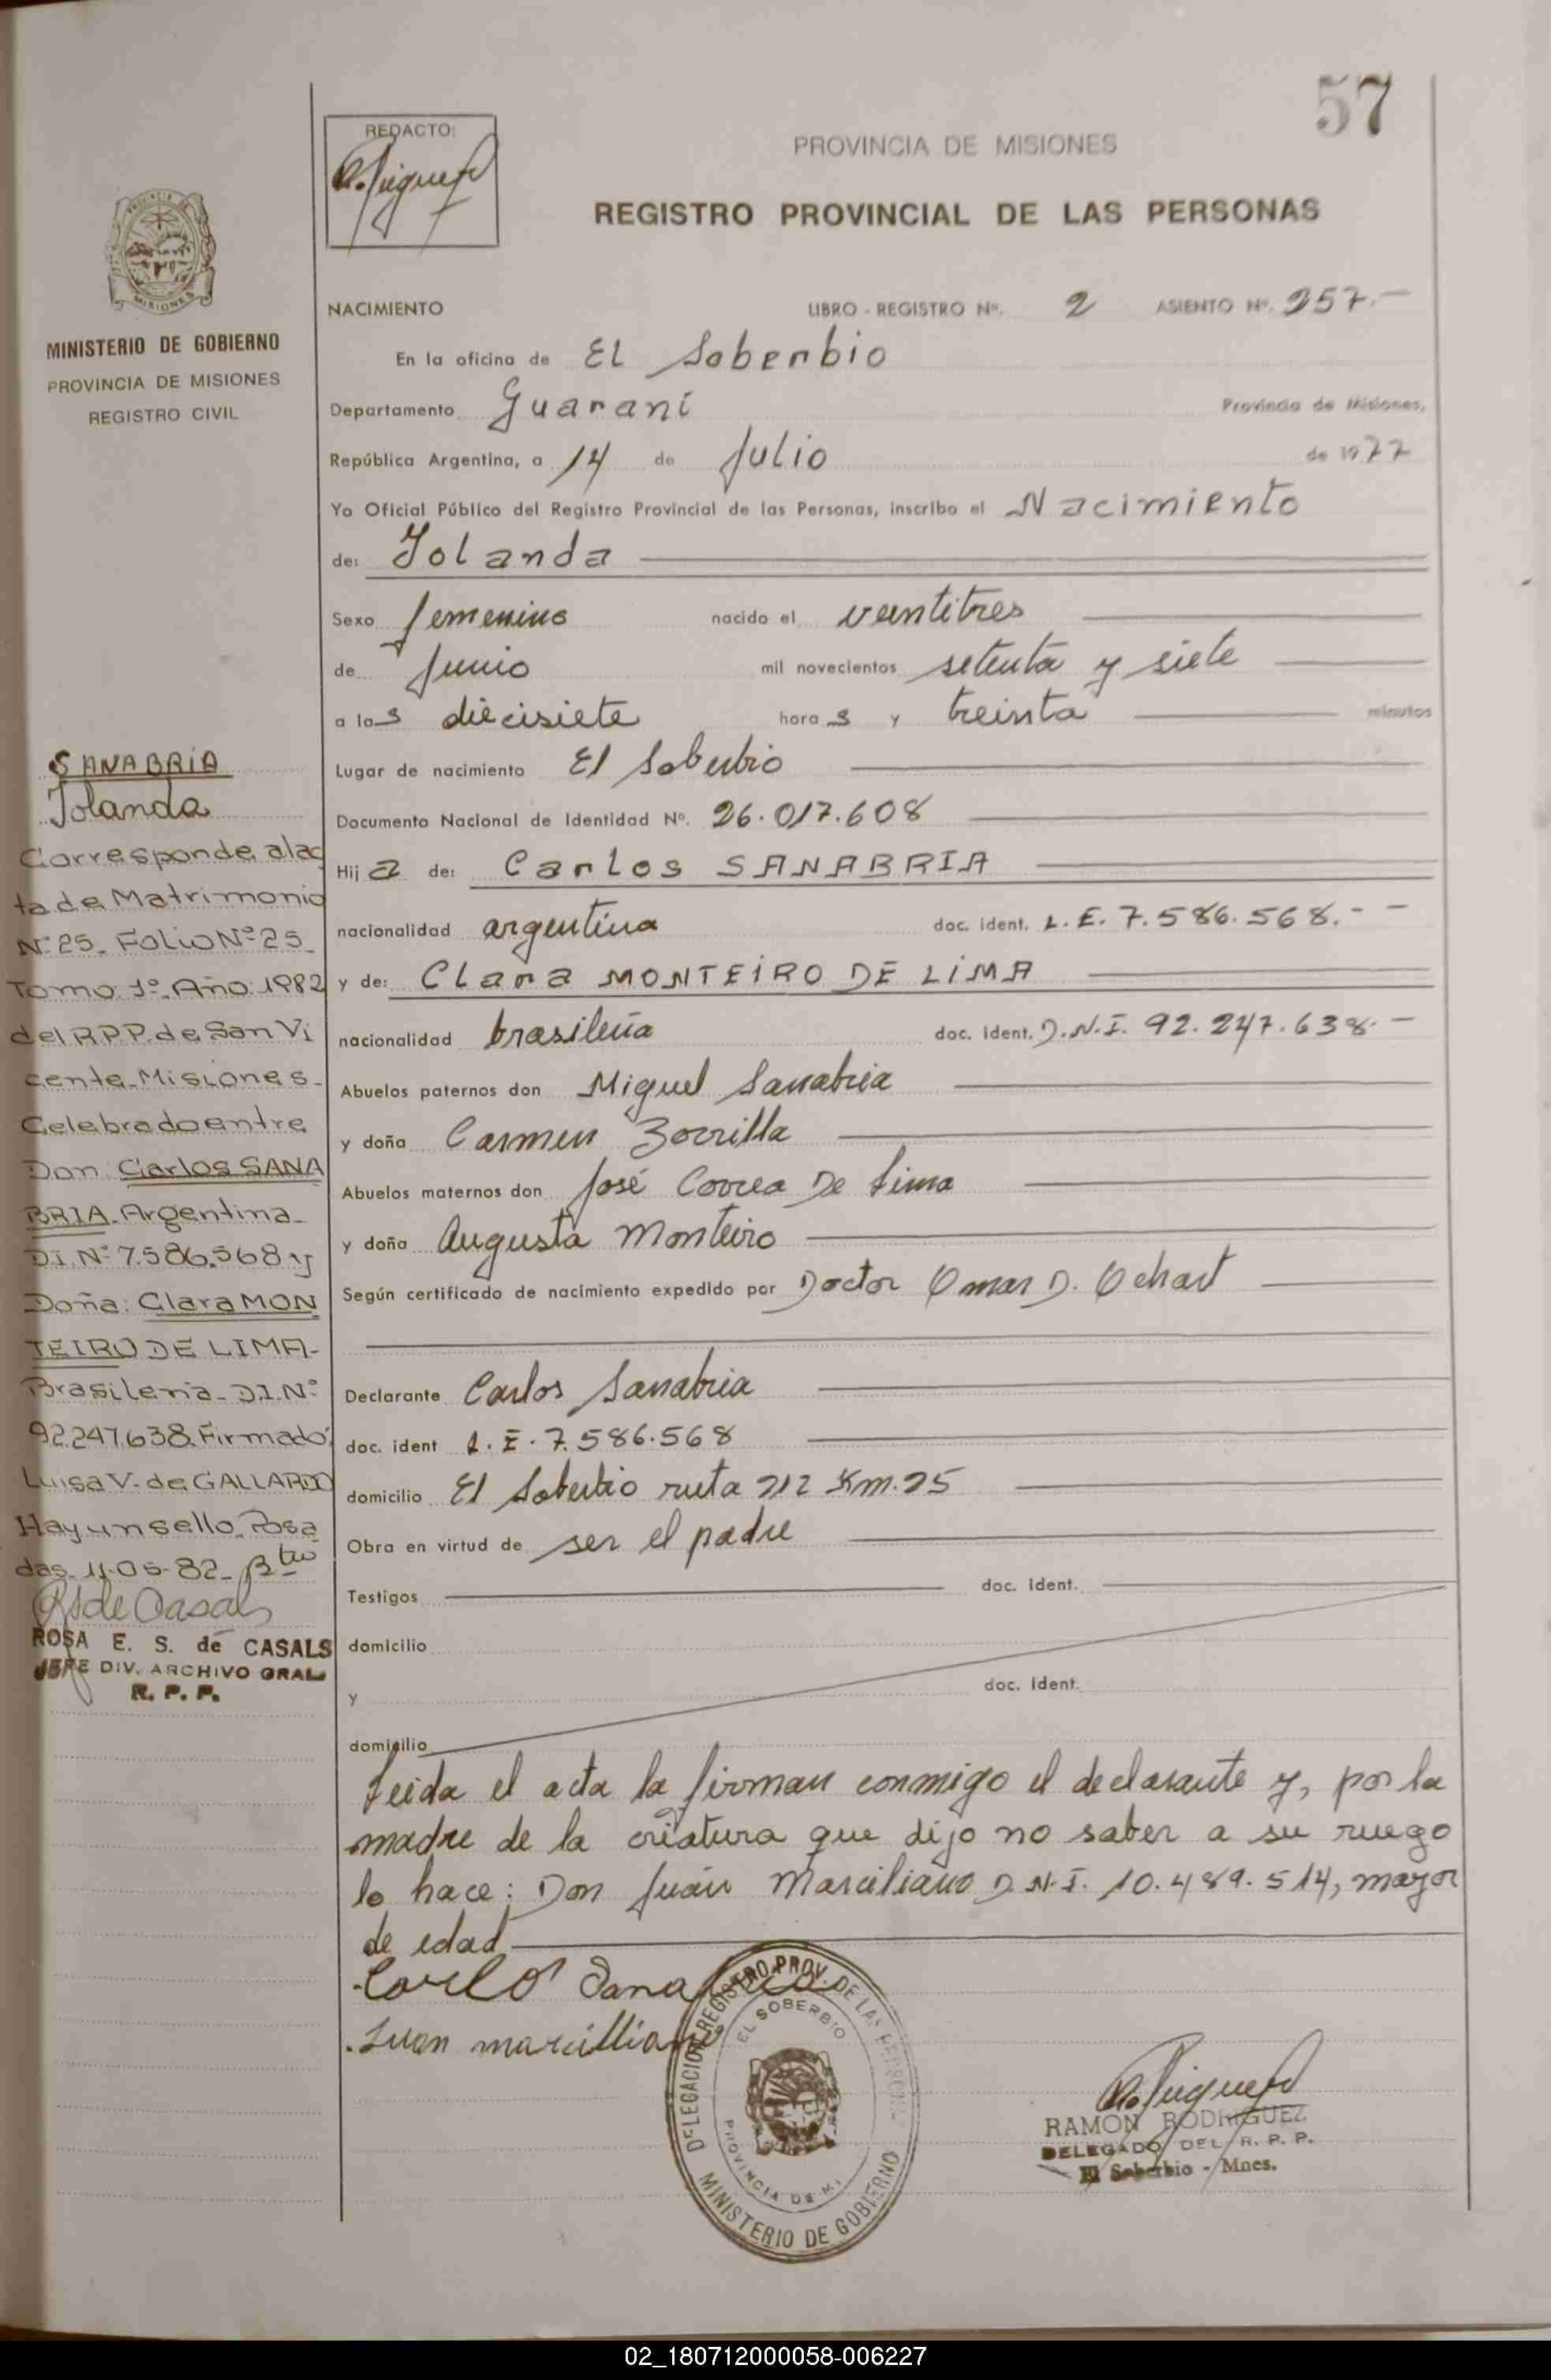 57
REDACTO:
PROVINCIA DE MISIONES
REGISTRO PROVINCIAL DE LAS PERSONAS
MISIONES
MINISTERIO DE GOBIERNO
PROVINCIA DE MISIONES
REGISTRO CIVIL
NACIMIENTO LIBRO - REGISTRO Nº. 2 ASIENTO Nº. 257.-
En la oficina de El Soberbio
Departamento Guaraní Provincia de Misiones,
República Argentina, a 14 de Julio de 1977
Yo Oficial Público del Registro Provincial de las Personas, inscribo el Nacimiento
de: Iolanda
Sexo femenino nacido el veintitres
de Junio mil novecientos setenta y siete
a las diecisiete horas y treinta minutos
Lugar de nacimiento El Soberbio
Documento Nacional de Identidad Nº. 26.017.608
Hija de: Carlos SANABRIA
nacionalidad argentina doc. ident. L.E. 7.586.568.--
y de: Clara MONTEIRO DE LIMA
nacionalidad brasileña doc. ident. D.N.I. 92.247.638.-
Abuelos paternos don Miguel Sanabria
y doña Carmen Zorrilla
Abuelos maternos don José Correa De Lima
y doña Augusta Monteiro
Según certificado de nacimiento expedido por Doctor Omar D. Ochart
Declarante Carlos Sanabria
doc. ident L.E. 7.586.568
domicilio El Soberbio ruta 212 Km. 25
Obra en virtud de ser el padre
Testigos doc. ident.
domicilio
y doc. ident.
domicilio
Leida el acta la firman conmigo el declarante y, por la
madre de la criatura que dijo no saber a su ruego
lo hace: Don Juán Marciliano D.N.I. 10.489.514, mayor
de edad
Carlo Sanabria
Juan marcilliano
SANABRIA
Iolanda
Corresponde al ac
ta de Matrimonio
Nº 25_ Folio Nº 25_
Tomo 1º_ Año 1982
del R.P.P. de San Vi
cente_ Misiones_
Celebrado entre
Don: Carlos SANA
BRIA_ Argentina_
D.I. Nº 7.586.568 y
Doña: Clara MON
TEIRO DE LIMA-
Brasileña_ D.I. Nº
92.247.638. Firmado:
Luisa V. de GALLARDO
Hay un sello. Posa
das_ 11-05-82_
RSde Casals
ROSA E. S. de CASALS
JEFE DIV. ARCHIVO GRAL.
R. P. P.
DELEGACION REGISTRO PROV. DE LAS PERSONAS
EL SOBERBIO
PROVINCIA DE MI.
MINISTERIO DE GOBIERNO
RAMON RODRIGUEZ
DELEGADO DEL R. P. P.
El Soberbio - Mnes.
02_180712000058-006227